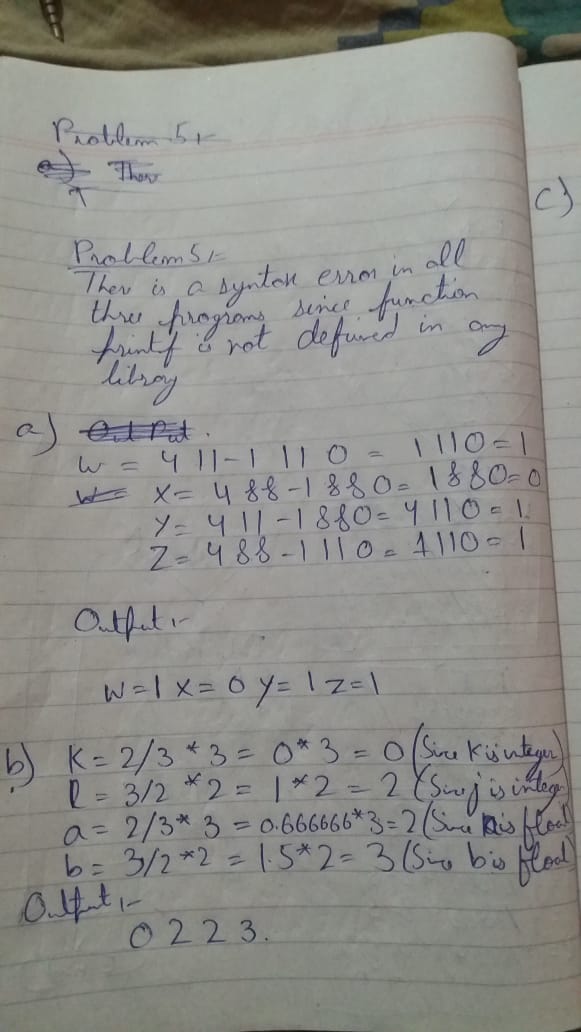 Problem 5:-
a) Ther
Problem 5:-
Ther is a syntax error in all
three programs since function
printf is not defined in any
libray
a) Out Put.
W = 4 || -1 || 0 = 1 || 0 = 1
W= X = 4 && -1 && 0 = 1 && 0 = 0
Y = 4 || -1 && 0 = 4 || 0 = 1.
Z = 4 && -1 || 0 = 1 || 0 = 1
Output :-
W=1 X=0 Y=1 Z=1
b) K = 2/3 * 3 = 0*3 = 0 (Since K is integer)
l = 3/2 *2 = 1*2 = 2 (Since j is integer
a = 2/3* 3 = 0.666666*3=2 (Since a is float
b = 3/2 *2 = 1.5*2= 3 (Sinc b is float
Output :-
0 2 2 3.
c)